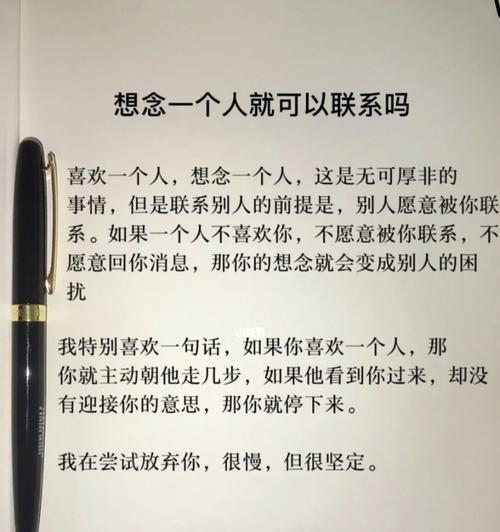 想念一个人就可以联系吗
喜欢一个人，想念一个人，这是无可厚非的
事情，但是联系别人的前提是，别人愿意被你联
系。如果一个人不喜欢你，不愿意被你联系，不
愿意回你消息，那你的想念就会变成别人的困
扰
小红书
我特别喜欢一句话，如果你喜欢一个人，那
你就主动朝他走几步，如果他看到你过来，却没
有迎接你的意思，那你就停下来。
我在尝试放弃你，很慢，但很坚定。